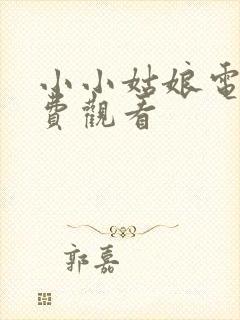 小小姑娘電
費觀看
郭嘉